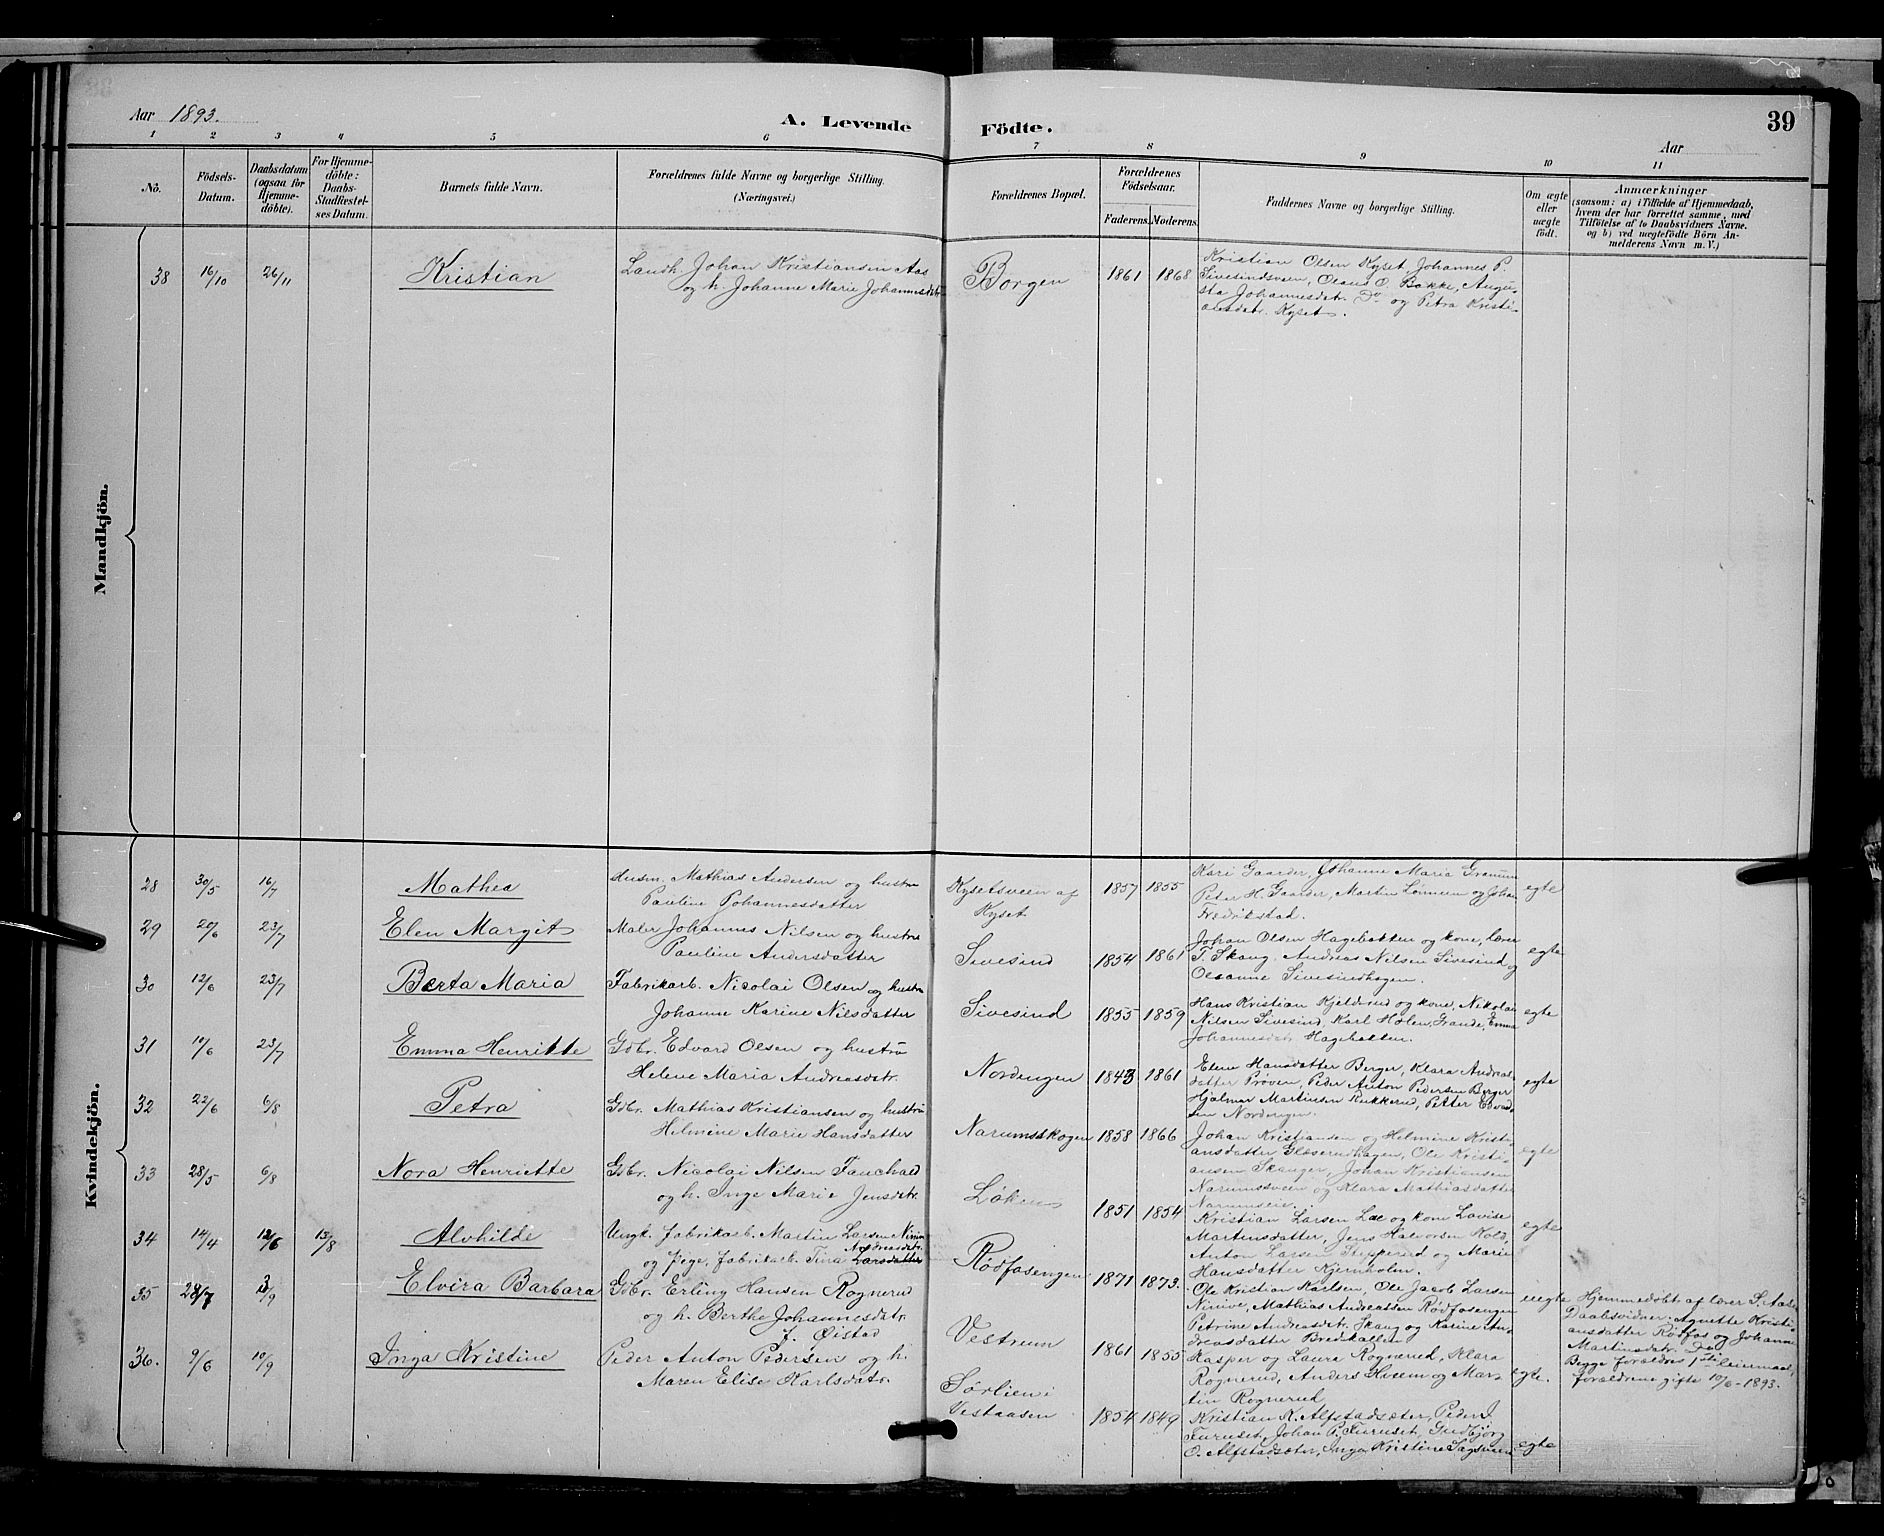 Aar 1893.
A. Levende Födte.
39
Aar
1 2 3 4 5 6 7 8 9 10 11
No.
Födsels-
Datum.
Daabsdatum
(ogsaa for
Hjemme-
döbte).
For Hjemme-
döbte:
Daabs-
Stadfestel-
ses Datum.
Barnets fulde Navn.
Forældrenes fulde Navne og borgerlige Stilling.
(Næringsvei.)
Forældrenes Bopæl.
Forældrenes
Födselsaar.
Faderens. Moderens.
Faddernes Navne og borgerlige Stilling.
Om ægte
eller
uægte
födt.
Anmærkninger
(saasom: a) i Tilfælde af Hjemmedaab,
hvem der har forrettet samme, med
Tilföielse af to Daabsvidners Navne.
og b) ved uægtefödte Börn An-
melderens Navn m. V.)
Mandkjön.
38 16/10 26/11 Kristian
Landh. Johan Kristiansen Aas
og h. Johanne Marie Johannesdtr
Borgen 1861 1868
Kristian Olsen Kyset, Johannes P.
Sivesindsveen, Olaus O. Bakke, Augu-
sta Johannesdtr. Do og Petra Kristi-
ansdatr. Kyset.
Kvindekjön.
28 30/5 16/7 Mathea
Husm. Mathias Andersen og hustru
Pauline Johannesdatter
Kysetsveen af
Kyset
1857 1855
Kari Gaarder, Johanne Maria
Peter H. Gaarder, Martin og Johan
Fredrikstad.
egte
29 20/6 23/7 Elen Margit
Maler Johannes Nilsen og hustru
Pauline Andersdatter
Sivesind 1854 1861
Johan Olsen Hagebakken og kone, lærer
T. Skaug, Andreas Nilsen Sivesind og
Oleanne Sivesindhagen.
egte
30 12/6 23/7 Berta Maria
Fabrikarb. Nicolai Olsen og hustru
Johanne Karine Nilsdatter
Sivesind 1855 1859
Hans Kristian Kjeldsrud og kone, Nikolai
Nilsen Sivesind, Karl Holen, Grande, Emma
Johannesdtr Hagebakken.
egte
31 10/6 23/7 Emma Henriette
Gdbr. Edvard Olsen og hustru
Helene Maria Andreasdtr.
Nordengen 1843 1861
Elene Hansdatter Berger, Klara Andreas-
datter Prøven, Peder Anton Pedersen Berger
Hjalmar Martinsen Rukkerud, Petter Edvard-
sen Nordengen.
egte
32 22/6 6/8 Petra
Gdbr. Mathias Kristiansen og hustru
Helmine Marie Hansdatter
Narumsskogen 1858 1866
Johan Kristiansen og Helmine Kristi-
ansdatter Glæserudhagen, Ole Kristi-
ansen Skanger, Johan Kristiansen
Narumsveen og Klara Mathiasdatter
Narumseie.
egte
33 28/5 6/8 Nora Henriette
Gdbr. Nicolai Nilsen Fauchald
og h. Inge Marie Jensdtr.
Løken 1851 1854
Kristian Larsen Lae og kone Lovise
Martinsdatter, Jens Halvorsen Kold,
Anton Larsen og Marie
Hansdatter Kjernholm.
egte
34 14/4 12/6 13/8 Alvhilde
Ungk. fabrikarb. Martin Larsen
og Pige, fabrikarb. Tina Larsdatter
Andreasdtr.
Rødfosengen 1871 1873.
Ole Kristian Karlsen, Ole Jacob Larsen
Ninive, Mathias Andreassen Rødfosengen
Petrine Andreasdtr. Skaug og Karine An-
dreasdatter Bredkallen
uegte
Hjemmedøbt af lærer S. Aas,
Daabsvidner: Agnette Kristi-
ansdatter Rødfos og Johanne
Martinsdtr. Do
Begge forældres 1ste leiermaal,
forældrene gifte 10/6-1893.
35 28/7 3/9 Elvira Barbara
Gdbr. Erling Hansen Rognerud
og h. Berthe Johannesdtr.
f. Øistad
Vestrum 1861 1855
Kasper og Laura Rognerud, Klara
Rognerud, Anders Husem og Mar-
tin Rognerud
egte.
36. 9/6 10/9 Inga Kristine
Peder Anton Pedersen og h.
Maren Elise Karlsdatr.
Sørlien i
Vestaasen
1854 1849
Kristian K. Alfstadsæter, Peder J.
Furuset, Johan P. Furuset, Gudbjørg
O. Alfstadsæter, Inga Kristine Sagsveen
egte